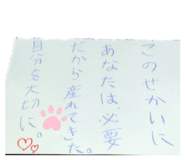 このせかいに
あなたは必要
だから産れてきた。
自分を大切に。